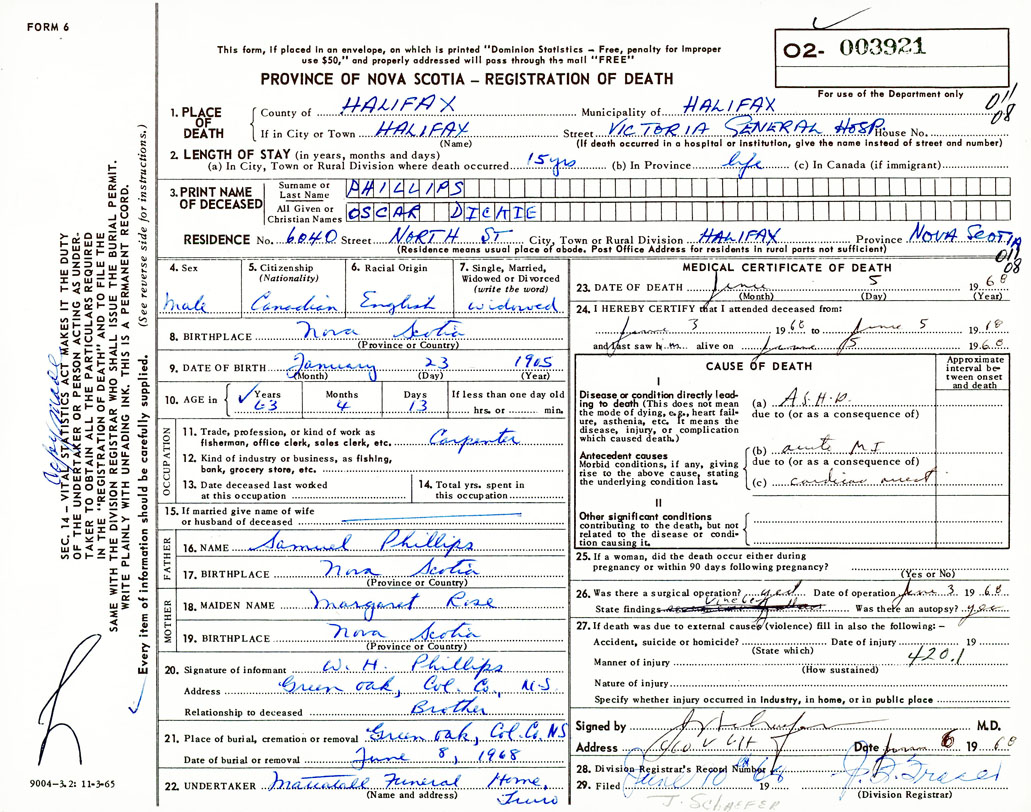 FORM 6
This form, if placed in an envelope, on which is printed "Dominion Statistics – Free, penalty for improper
use $50," and properly addressed will pass through the mail "FREE"
PROVINCE OF NOVA SCOTIA – REGISTRATION OF DEATH
02- 003921
For use of the Department only
011
08
1. PLACE OF DEATH
County of HALIFAX Municipality of HALIFAX
If in City or Town HALIFAX Street VICTORIA GENERAL HOSP. House No.
(Name) (If death occurred in a hospital or institution, give the name instead of street and number)
2. LENGTH OF STAY (in years, months and days)
(a) In City, Town or Rural Division where death occurred 15 yrs (b) In Province life (c) In Canada (if immigrant)
3. PRINT NAME OF DECEASED
Surname or Last Name PHILLIPS
All Given or Christian Names OSCAR DICKIE
RESIDENCE No. 6040 Street NORTH ST City, Town or Rural Division HALIFAX Province NOVA SCOTIA
(Residence means usual place of abode. Post Office Address for residents in rural parts not sufficient)
011
08
4. Sex
Male
5. Citizenship (Nationality)
Canadian
6. Racial Origin
English
7. Single, Married, Widowed or Divorced (write the word)
widowed
8. BIRTHPLACE Nova Scotia
(Province or Country)
9. DATE OF BIRTH January 23 1905
(Month) (Day) (Year)
10. AGE in Years 63 Months 4 Days 13 If less than one day old hrs. or min.
OCCUPATION
11. Trade, profession, or kind of work as fisherman, office clerk, sales clerk, etc. Carpenter
12. Kind of industry or business, as fishing, bank, grocery store, etc.
13. Date deceased last worked at this occupation
14. Total yrs. spent in this occupation
15. If married give name of wife or husband of deceased
FATHER
16. NAME Samuel Phillips
17. BIRTHPLACE Nova Scotia
(Province or Country)
MOTHER
18. MAIDEN NAME Margaret Rose
19. BIRTHPLACE Nova Scotia
(Province or Country)
20. Signature of informant W. H. Phillips
Address Green oak, Col. Co., N.S.
Relationship to deceased Brother
21. Place of burial, cremation or removal Green oak, Col. Co. NS
Date of burial or removal June 8, 1968
22. UNDERTAKER Mattatall Funeral Home,
(Name and address) Truro
MEDICAL CERTIFICATE OF DEATH
23. DATE OF DEATH June 5 1968
(Month) (Day) (Year)
24. I HEREBY CERTIFY that I attended deceased from:
June 3 1968 to June 5 1968
and last saw him alive on June 5 1968
CAUSE OF DEATH
Approximate interval between onset and death
I
Disease or condition directly leading to death (This does not mean the mode of dying, e.g., heart failure, asthenia, etc. It means the disease, injury, or complication which caused death.)
(a) A.S.H.D.
due to (or as a consequence of)
Antecedent causes
Morbid conditions, if any, giving rise to the above cause, stating the underlying condition last.
(b) acute M I
due to (or as a consequence of)
(c) cardiac arrest
II
Other significant conditions contributing to the death, but not related to the disease or condition causing it.
25. If a woman, did the death occur either during pregnancy or within 90 days following pregnancy?
(Yes or No)
26. Was there a surgical operation? yes Date of operation June 3 1968
State findings Was there an autopsy? yes
27. If death was due to external causes (violence) fill in also the following: –
Accident, suicide or homicide? Date of injury 19
(State which)
420.1
Manner of injury
(How sustained)
Nature of injury
Specify whether injury occurred in Industry, in home, or in public place
Signed by M.D.
Address Date June 6 1968
28. Division Registrar's Record Number
29. Filed June 10 1968 J. D. Fraser
(Division Registrar)
J. SCHAEFER
SEC. 14 – VITAL STATISTICS ACT MAKES IT THE DUTY
OF THE UNDERTAKER OR PERSON ACTING AS UNDER-
TAKER TO OBTAIN ALL THE PARTICULARS REQUIRED
IN THE "REGISTRATION OF DEATH" AND TO FILE THE
SAME WITH THE DIVISION REGISTRAR WHO SHALL ISSUE THE BURIAL PERMIT.
WRITE PLAINLY WITH UNFADING INK. THIS IS A PERMANENT RECORD.
Every item of information should be carefully supplied. (See reverse side for instructions.)
Copy made
9004–3.2: 11-3-65